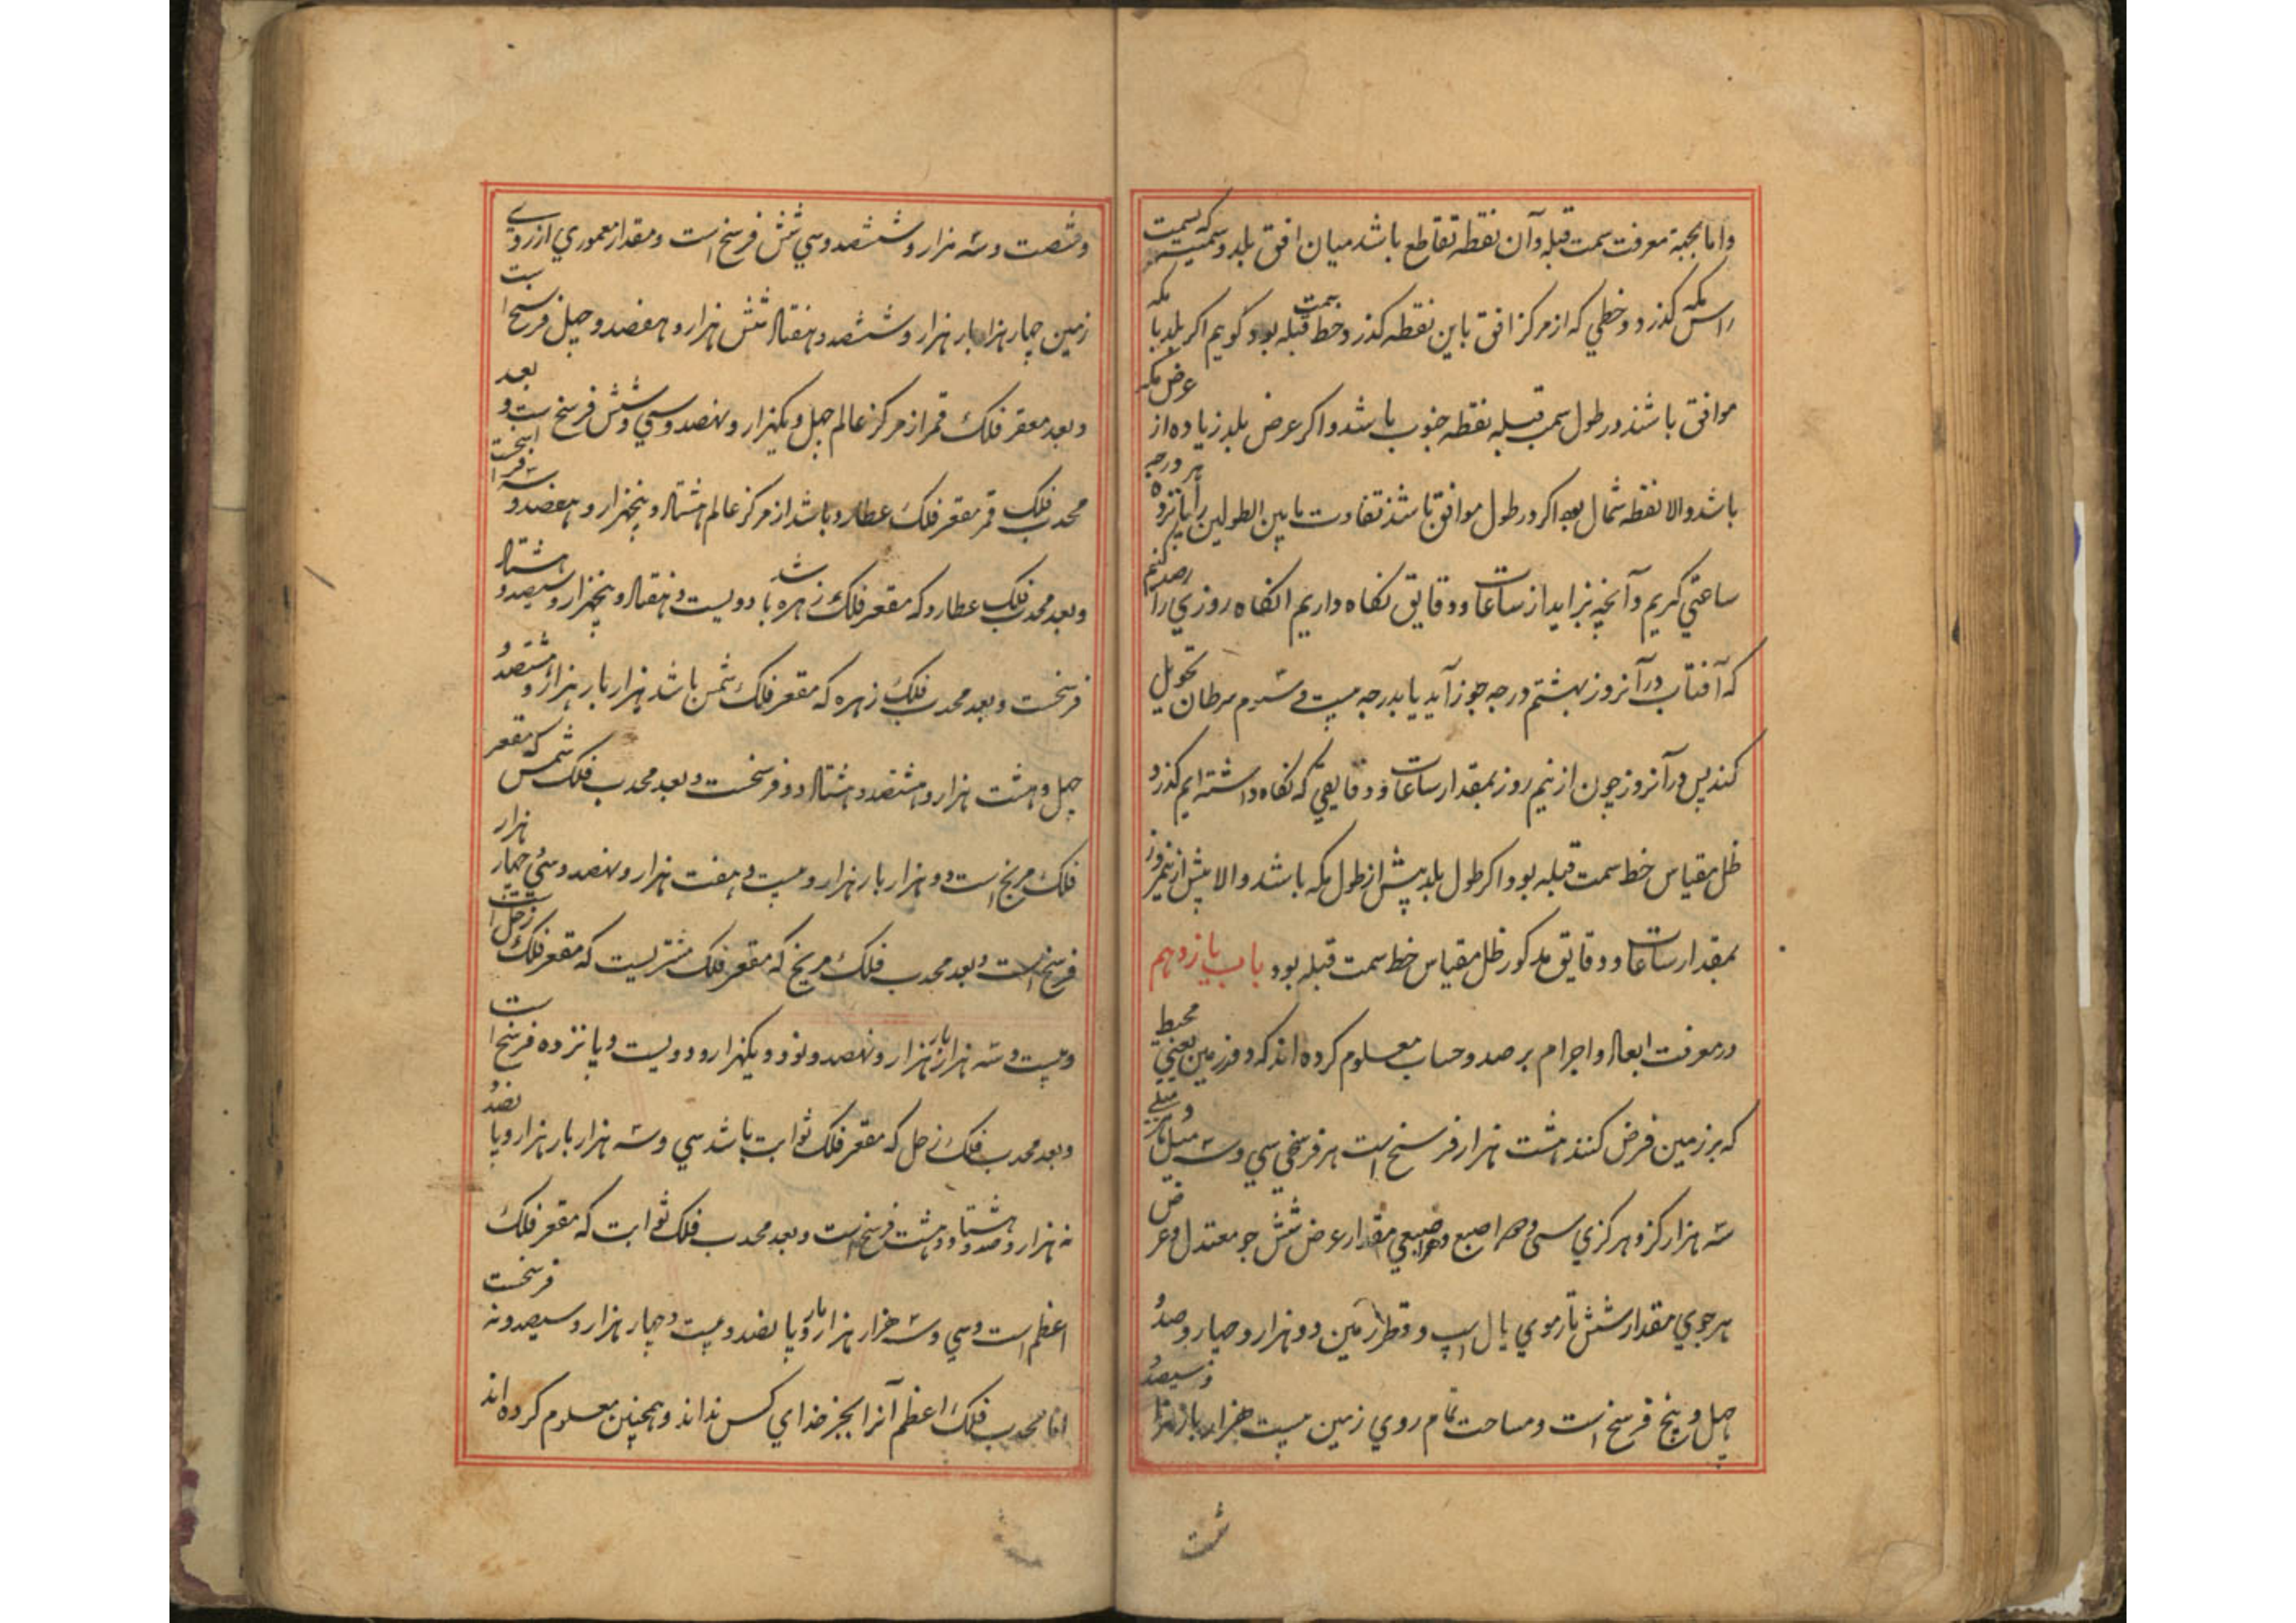 واما بجهة معرفت سمت قبله وآن نقطه تقاطع باشد میان افق بلد و سمتیه که بسمت
راس مکه گذرد و خطی که از مرکز افق باین نقطه گذرد خط سمت قبله بود گوییم اگر بلد با مکه
موافق باشند در طول سمت قبله نقطه جنوب باشد و اگر عرض بلد زیاده از عرض مکه
باشد والا نقطه شمال بود اگر در طول موافق باشند تفاوت ما بین الطولین را هر پانزده درجه
ساعتی گیریم و آنچه بزاید از ساعات و دقایق نگاه داریم انگاه روزی را رصد کنیم
که آفتاب در آنروز بهشتم درجه جوزا آید یا بدرجه بیست و سیوم سرطان تحویل
کند پس در آنروز چون از نیم روز بمقدار ساعات و دقایقی که نگاه داشته ایم گذرد
ظل مقیاس خط سمت قبله بود اگر طول بلد بیش از طول مکه باشد والا پیش از نیم روز
بمقدار ساعات و دقایق مذکور ظل مقیاس خط سمت قبله بود باب یازدهم
در معرفت ابعاد و اجرام برصد و حساب معلوم کرده اند که دور زمین یعنی محیط
که بر زمین فرض کنند هشت هزار فرسخ است هر فرسخی سه میل و میلی
سه هزار گز و هر گزی سی و دو اصبع و هر اصبعی مقدار عرض شش جو معتدل و عرض
هر جوی مقدار شش تار موی یال اسپ و قطر زمین دو هزار و چهار و صد و
چهل و پنج فرسخ است و مساحت تمام روی زمین بیست هزار بار هزار و سیصد و
شصت
و شصت و سه هزار و ششصد و سی شش فرسخ است و مقدار معموری از روی
زمین چهار هزار بار هزار و ششصد و هفتاد شش هزار و هفصد و چهل فرسخ است
و بعد مقعر فلک قمر از مرکز عالم چهل و یکهزار و نهصد و سی و شش فرسخ است و بعد
محدب فلک قمر مقعر فلک عطارد باشد از مرکز عالم هشتاد و پنجهزار و هفصد و سه
و بعد محدب فلک عطارد که مقعر فلک زهره باشد دویست و هفتاد و پنجهزار و سیصد و هشتاد
فرسخست و بعد محدب فلک زهره که مقعر فلک شمس باشد هزار بار هزار و هشتصد و
چهل و هشت هزار و هشتصد و هشتاد دو فرسخست و بعد محدب فلک شمس که مقعر
فلک مریخ است دو هزار بار هزار و بیست و هفت هزار و نهصد و سی و چهار هزار
فرسخ است و بعد محدب فلک مریخ که مقعر فلک مشتریست که مقعر فلک زحل است
و بیست و سه هزار بار هزار و نهصد و نود و یکهزار و دویست و پانزده فرسخ است
و بعد محدب فلک زحل که مقعر فلک ثوابت باشد سی و سه هزار بار هزار و پانصد و
نه هزار و صد و هشتاد و هشت فرسخ است و بعد محدب فلک ثوابت که مقعر فلک
اعظم است و سی و سه هزار بار هزار و پانصد و بیست و چهار هزار و سیصد و نه فرسخست
اما محدب فلک اعظم آنرا بجز خدای کس نداند و همچنین معلوم کرده اند